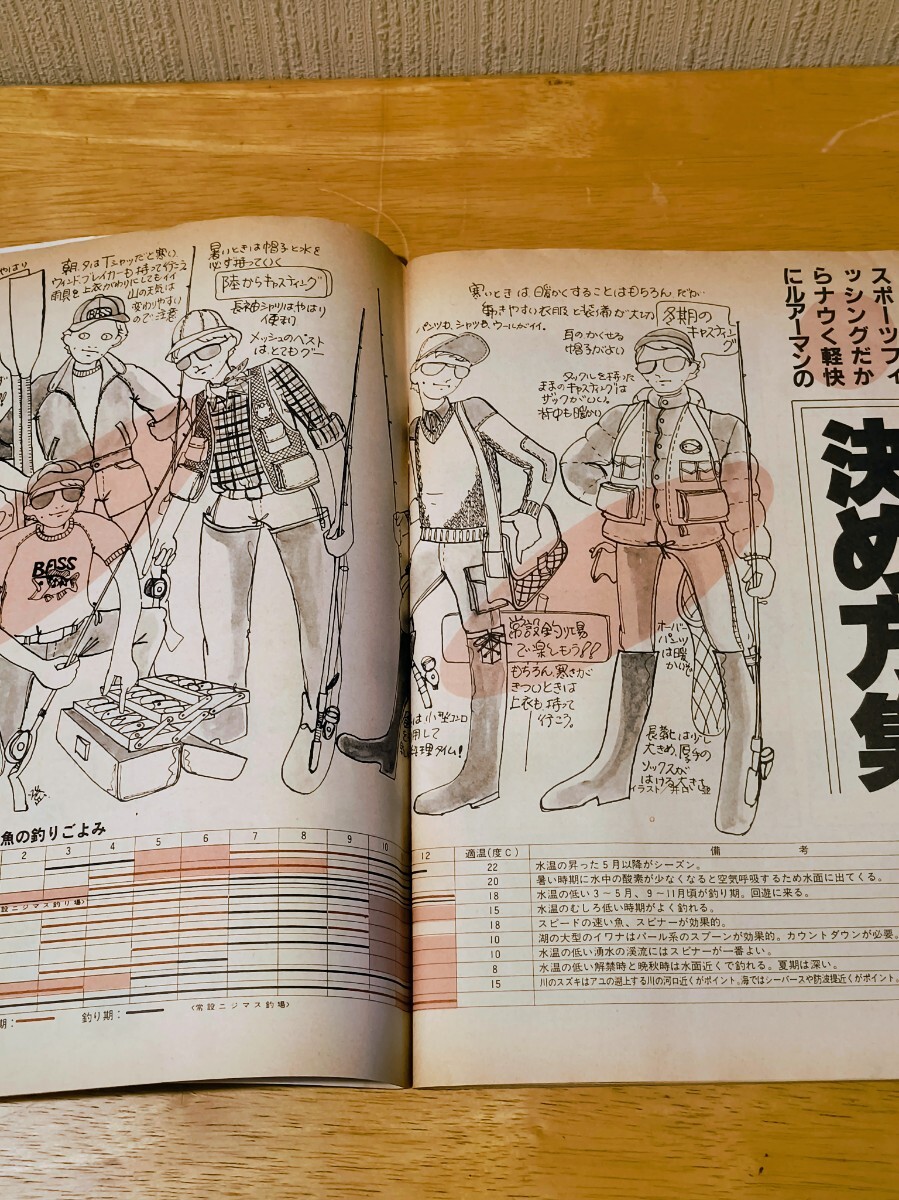 スポーツフィ
ッシングだか
らナウく軽快
にルアーマンの
決め方集
やはり
朝、夕はTシャツだと寒い
ウィンドブレイカーも持って行こう
雨具を上衣がわりにしてもイイ
山の天気は
変わりやすい
ので注意
暑いときは帽子と水を
必ず持っていく
陸からキャスティング
長袖シャツはやはり
便利
メッシュのベスト
はとてもグー
BASS
寒いときは、暖かくすることはもちろん、だが
動きやすい衣服と装備が大切
冬期の
キャスティング
パンツも、シャツも、ウールがイイ。
耳のかくせる
帽子がよい
タックルを持った
ままのキャスティングは
ザックがいい。
背中も暖かい
常設釣り場
で楽しもう!!
もちろん、寒さが
きついときは
上衣も持って
行こう。
は小型コンロ
用して
料理タイム!
オーバー
パンツ
は暖
かい
長靴は少し
大きめ、厚手の
ソックスが
はける大きさ
イラスト/
魚の釣りごよみ
2 3 4 5 6 7 8 9 10
12 適温(度C) 備 考
22 水温の昇った5月以降がシーズン。
20 暑い時期に水中の酸素が少なくなると空気呼吸するため水面に出てくる。
18 水温の低い3~5月、9~11月頃が釣り期。回遊に来る。
15 水温のむしろ低い時期がよく釣れる。
18 スピードの速い魚、スピナーが効果的。
10 湖の大型のイワナはパール系のスプーンが効果的。カウントダウンが必要。
10 水温の低い湧水の渓流にはスピナーが一番よい。
8 水温の低い解禁時と晩秋時は水面近くで釣れる。夏期は深い。
15 川のスズキはアユの遡上する川の河口近くがポイント。海ではシーバースや防波堤近くがポイント。
設ニジマス釣り場)
期: 釣り期: (常設ニジマス釣場)